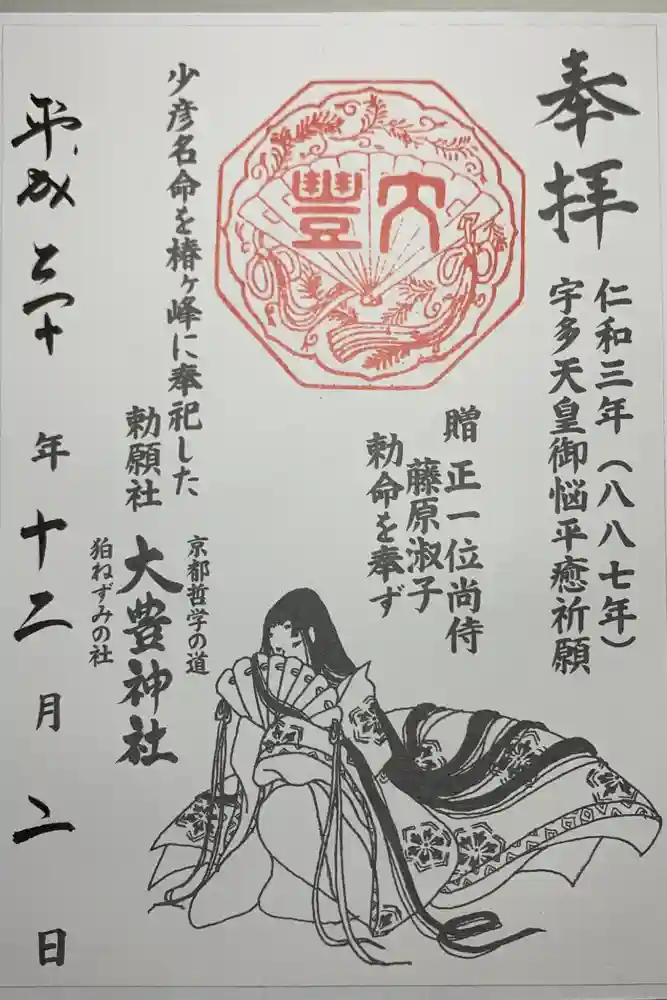 奉拝
仁和三年（八八七年）
宇多天皇御悩平癒祈願
大豊
贈 正一位尚侍
藤原淑子
勅命を奉ず
少彦名命を椿ヶ峰に奉祀した
勅願社
京都哲学の道
大豊神社
狛ねずみの社
平成三十年十二月二日